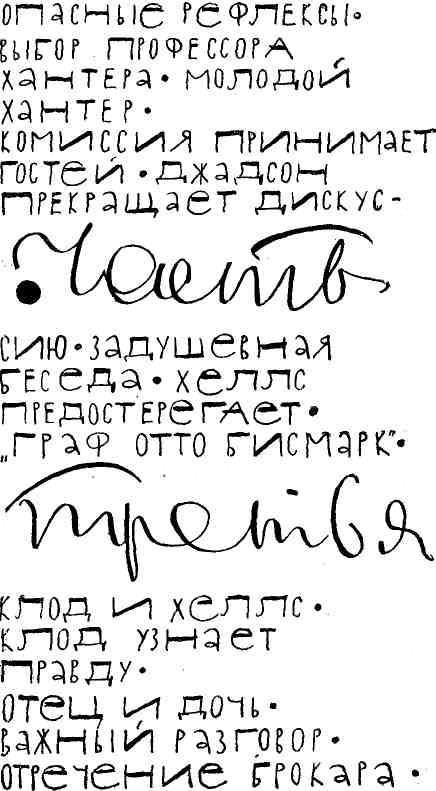 ОПАСНЫЕ РЕФЛЕКСЫ•
ВЫБОР ПРОФЕССОРА
ХАНТЕРА• МОЛОДОЙ
ХАНТЕР•
КОМИССИЯ ПРИНИМАЕТ
ГОСТЕЙ • ДЖАДСОН
ПРЕКРАЩАЕТ ДИСКУС-
• Часть
СИЮ• ЗАДУШЕВНАЯ
БЕСЕДА• ХЕЛЛС
ПРЕДОСТЕРЕГАЕТ•
„ГРАФ ОТТО БИСМАРК"•
третья
КЛОД И ХЕЛЛС•
КЛОД УЗНАЕТ
ПРАВДУ•
ОТЕЦ И ДОЧЬ•
ВАЖНЫЙ РАЗГОВОР•
ОТРЕЧЕНИЕ БРОКАРА•